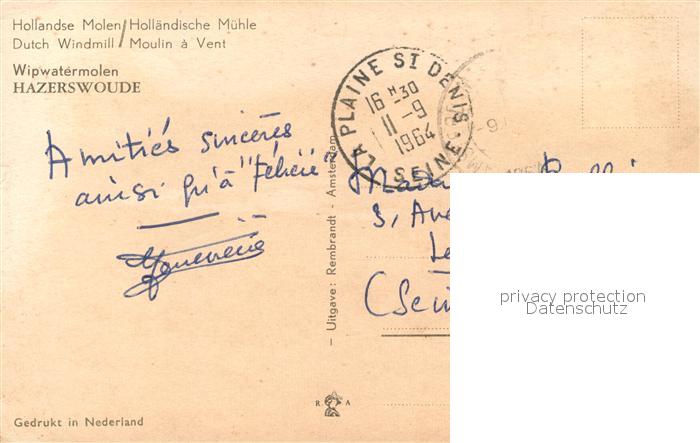 Hollandse Molen / Holländische Mühle
Dutch Windmill / Moulin à Vent
Wipwatermolen
HAZERSWOUDE
LA PLAINE ST DENIS
16 H-30
11-9
1964
SEINE
Amitiés sincères
ainsi qu'à "Félicie"
Uitgave: Rembrandt - Amsterdam
3, Ave
(Sei
privacy protection
Datenschutz
R A
Gedrukt in Nederland